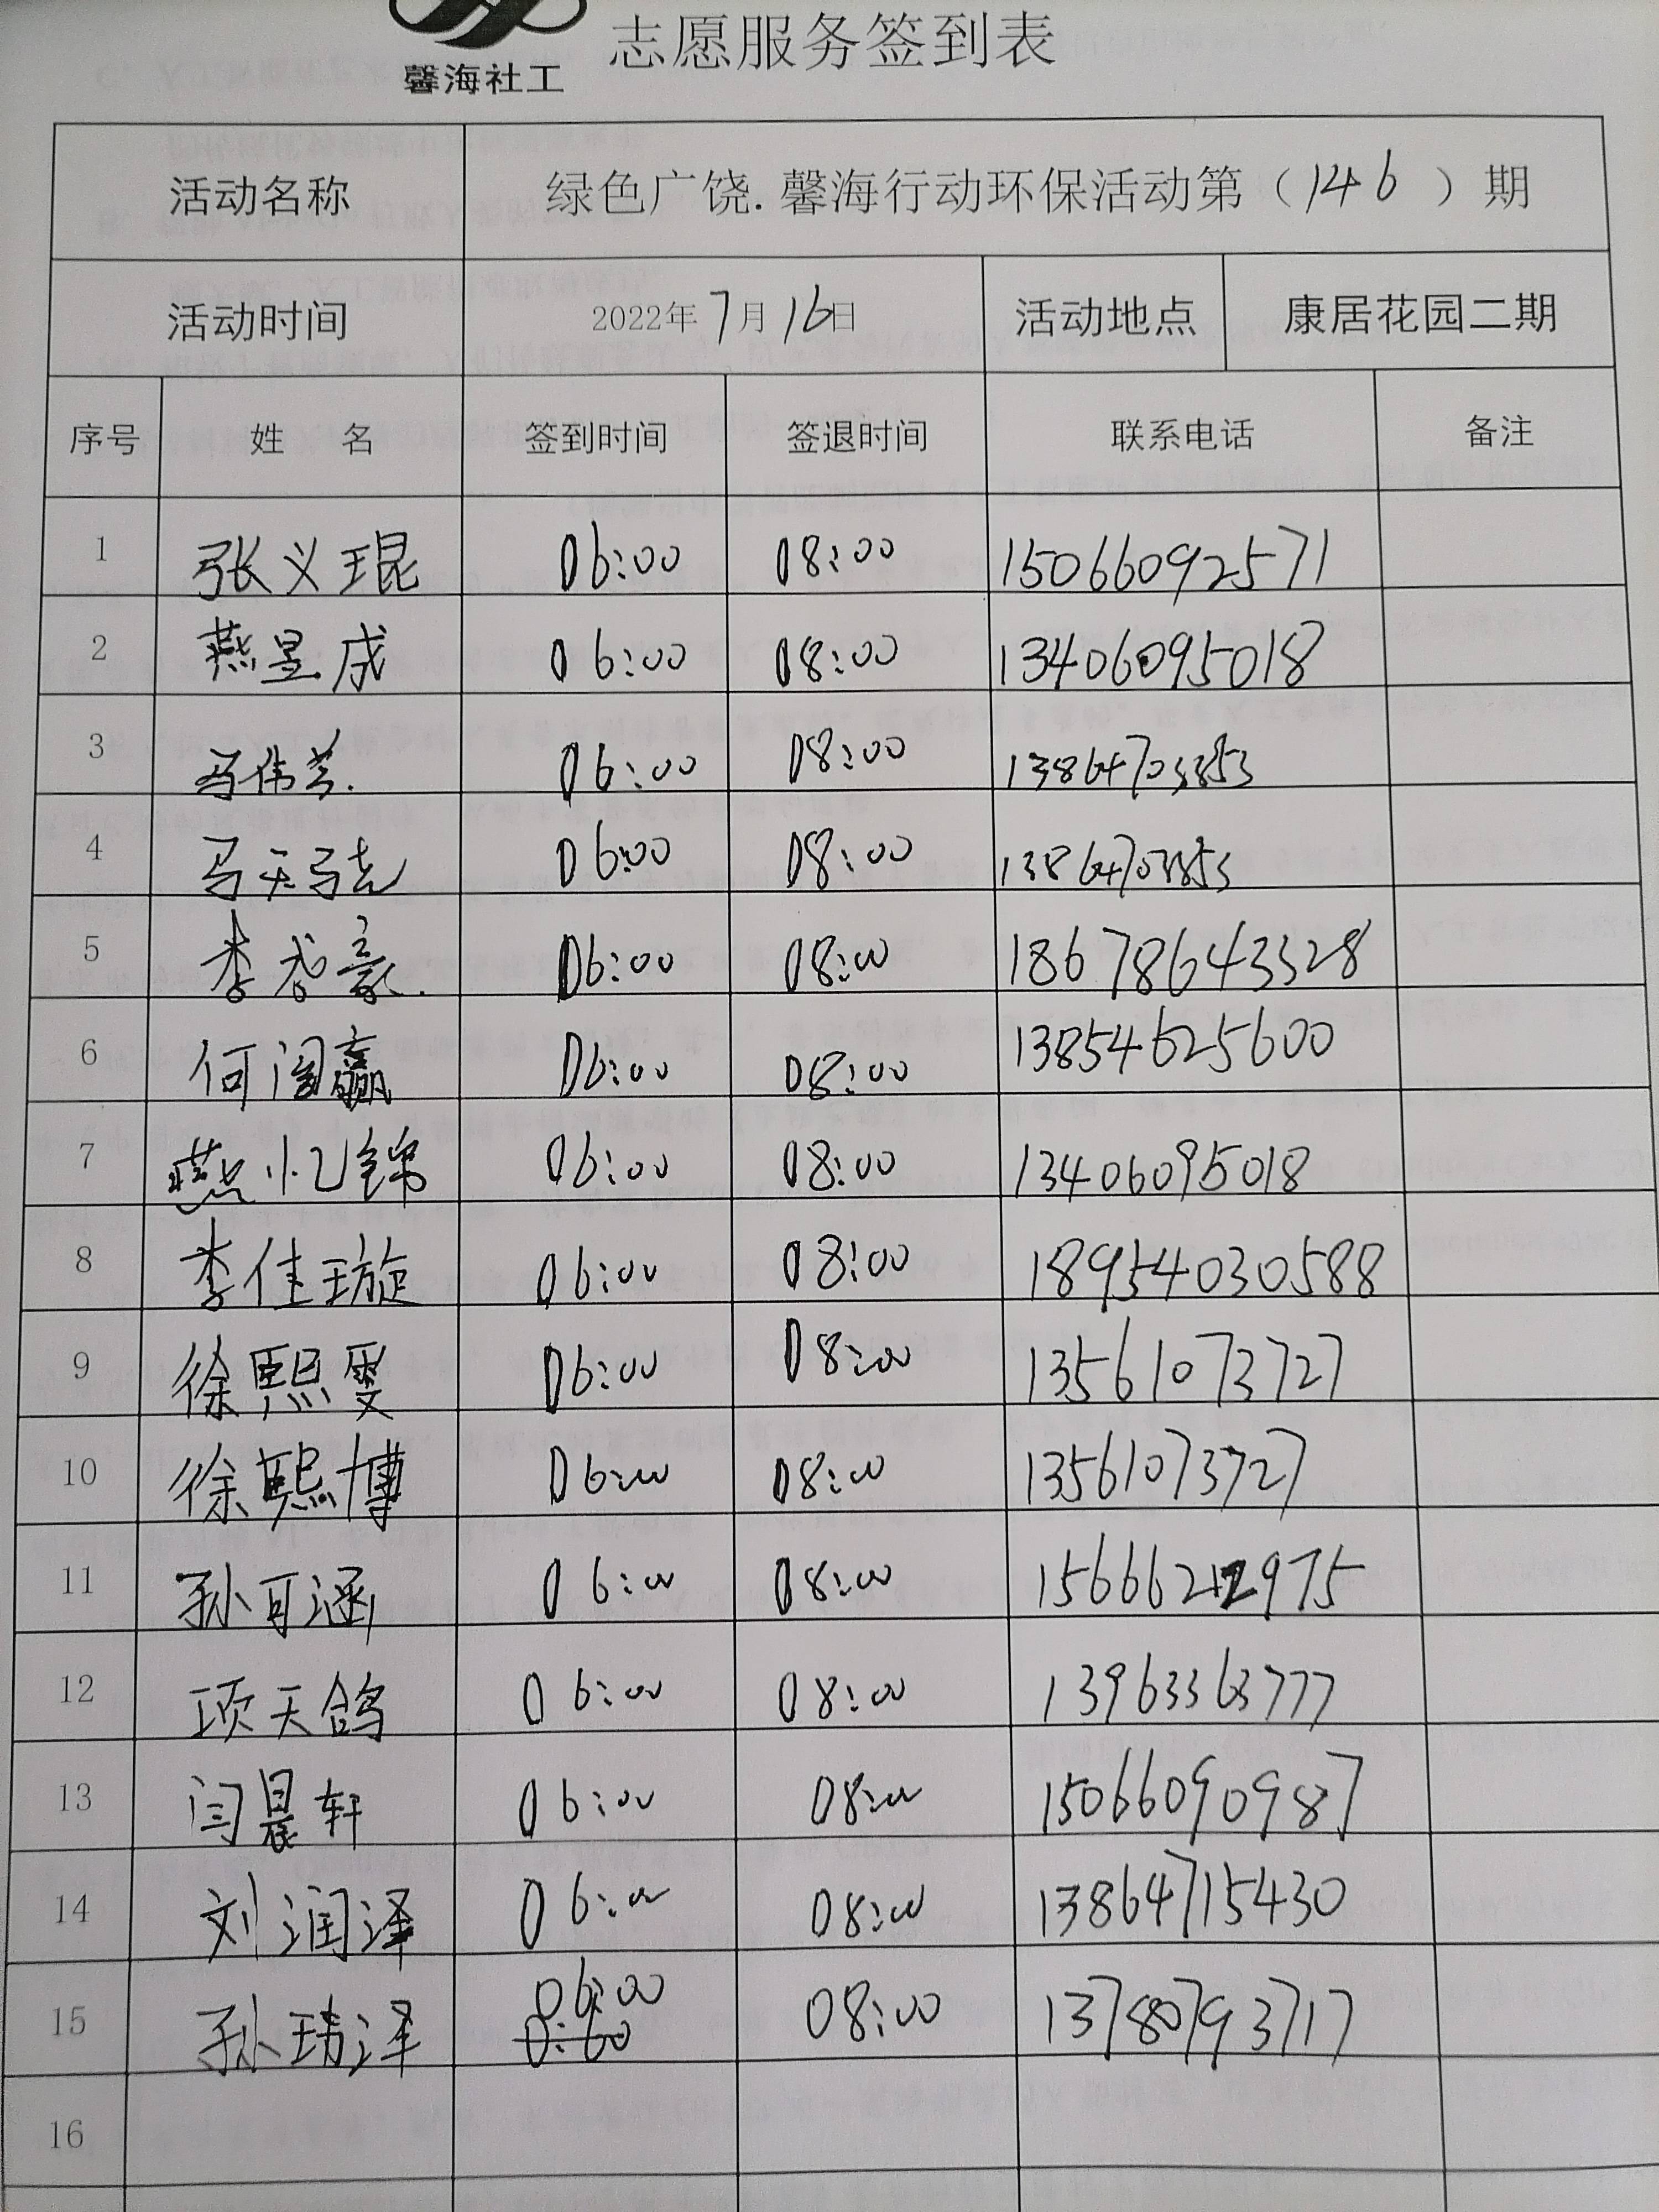 志愿服务签到表
馨海社工
活动名称 绿色广饶.馨海行动环保活动第（146）期
活动时间 2022年7月16日 活动地点 康居花园二期
序号 姓 名 签到时间 签退时间 联系电话 备注
1 张义琨 06:00 08:00 15066092571
2 燕昱成 06:00 08:00 13406095018
3 马伟芳. 06:00 08:00 13864703853
4 马天骐 06:00 08:00 13864703853
5 李君豪. 06:00 08:00 18678643328
6 何闰赢 06:00 08:00 13854625600
7 燕忆锦 06:00 08:00 13406095018
8 李佳璇 06:00 08:00 18954030588
9 徐熙雯 06:00 08:00 13561073727
10 徐熙博 06:00 08:00 13561073727
11 孙可涵 06:00 08:00 15666212975
12 项天鸽 06:00 08:00 13963363777
13 闫晨轩 06:00 08:00 15066090987
14 刘润泽 06:00 08:00 13864715430
15 孙瑀泽 06:00 08:00 13780793717
16